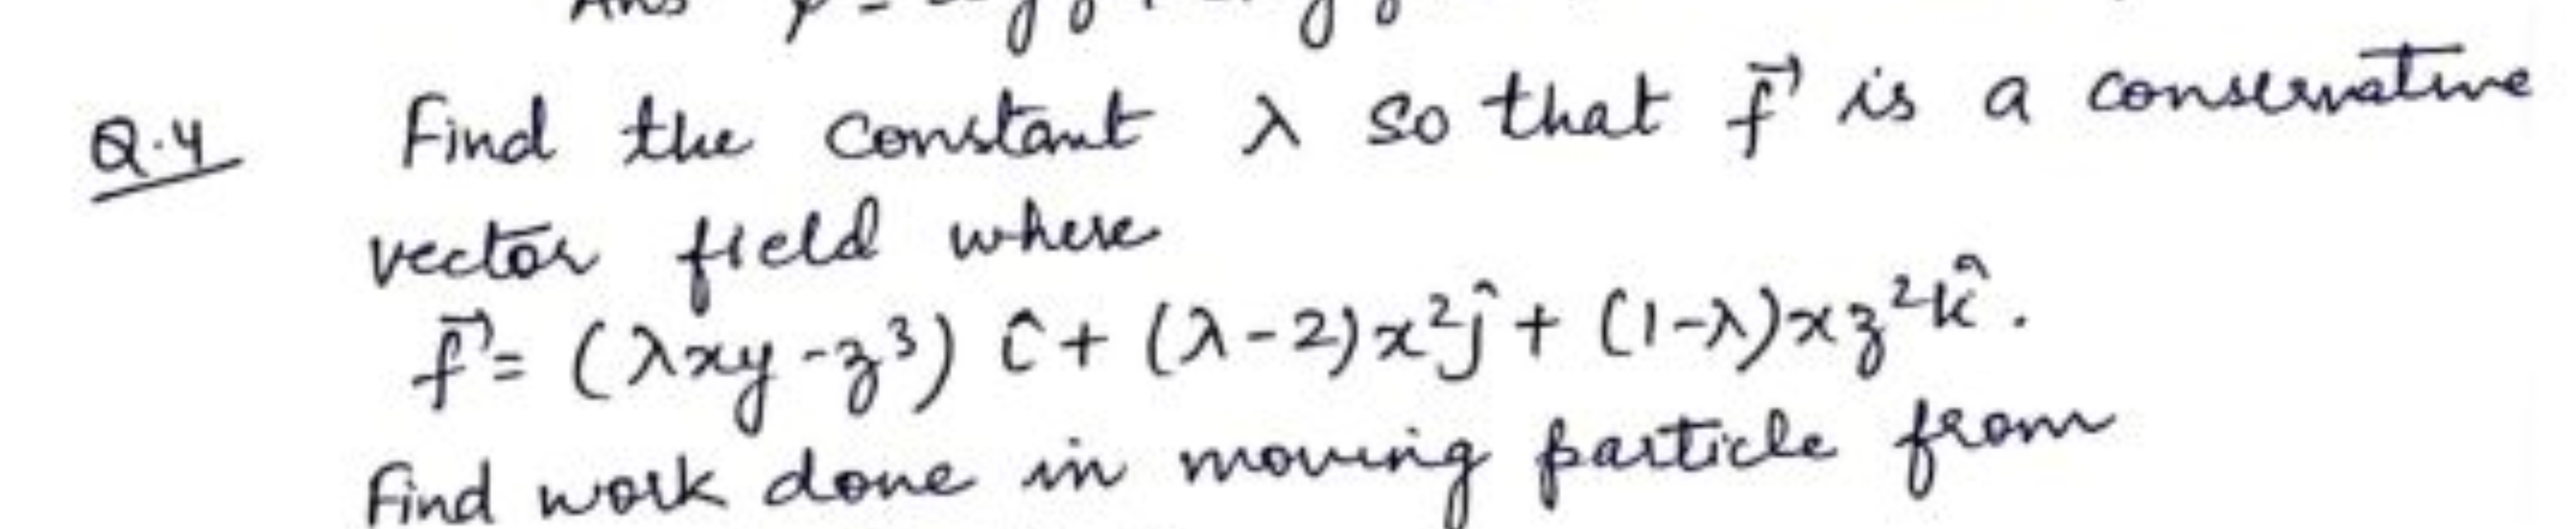 Ans
Q.4 Find the constant λ so that f⃗ is a conservative
vector field where
f⃗ = (λxy - z³) î + (λ-2)x²ĵ + (1-λ)xz²k̂.
Find work done in moving particle from